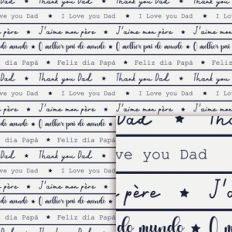 I Love you Dad ★ I Love you Dad ★ I Love
père ★ J'aime mon père ★ J'aime mon
do mundo ★ O melhor pai do mundo ★ O melhor pai
dia Papá ★ Feliz día Papá ★ Feliz
Dad ★ Thank you Dad ★ Thank you Dad
ve you Dad ★ I Love you Dad ★ I Love
père ★ J'aime mon père ★ J'aime mon
melhor pai do mundo ★
Dad ★ Thank
Dad ★ Thank you Dad
ve you Dad
ve you Dad ★
père ★ J'a
père ★ J'aime mon père
do mundo ★
melhor pai do mundo ★
dia Papá ★ Feliz